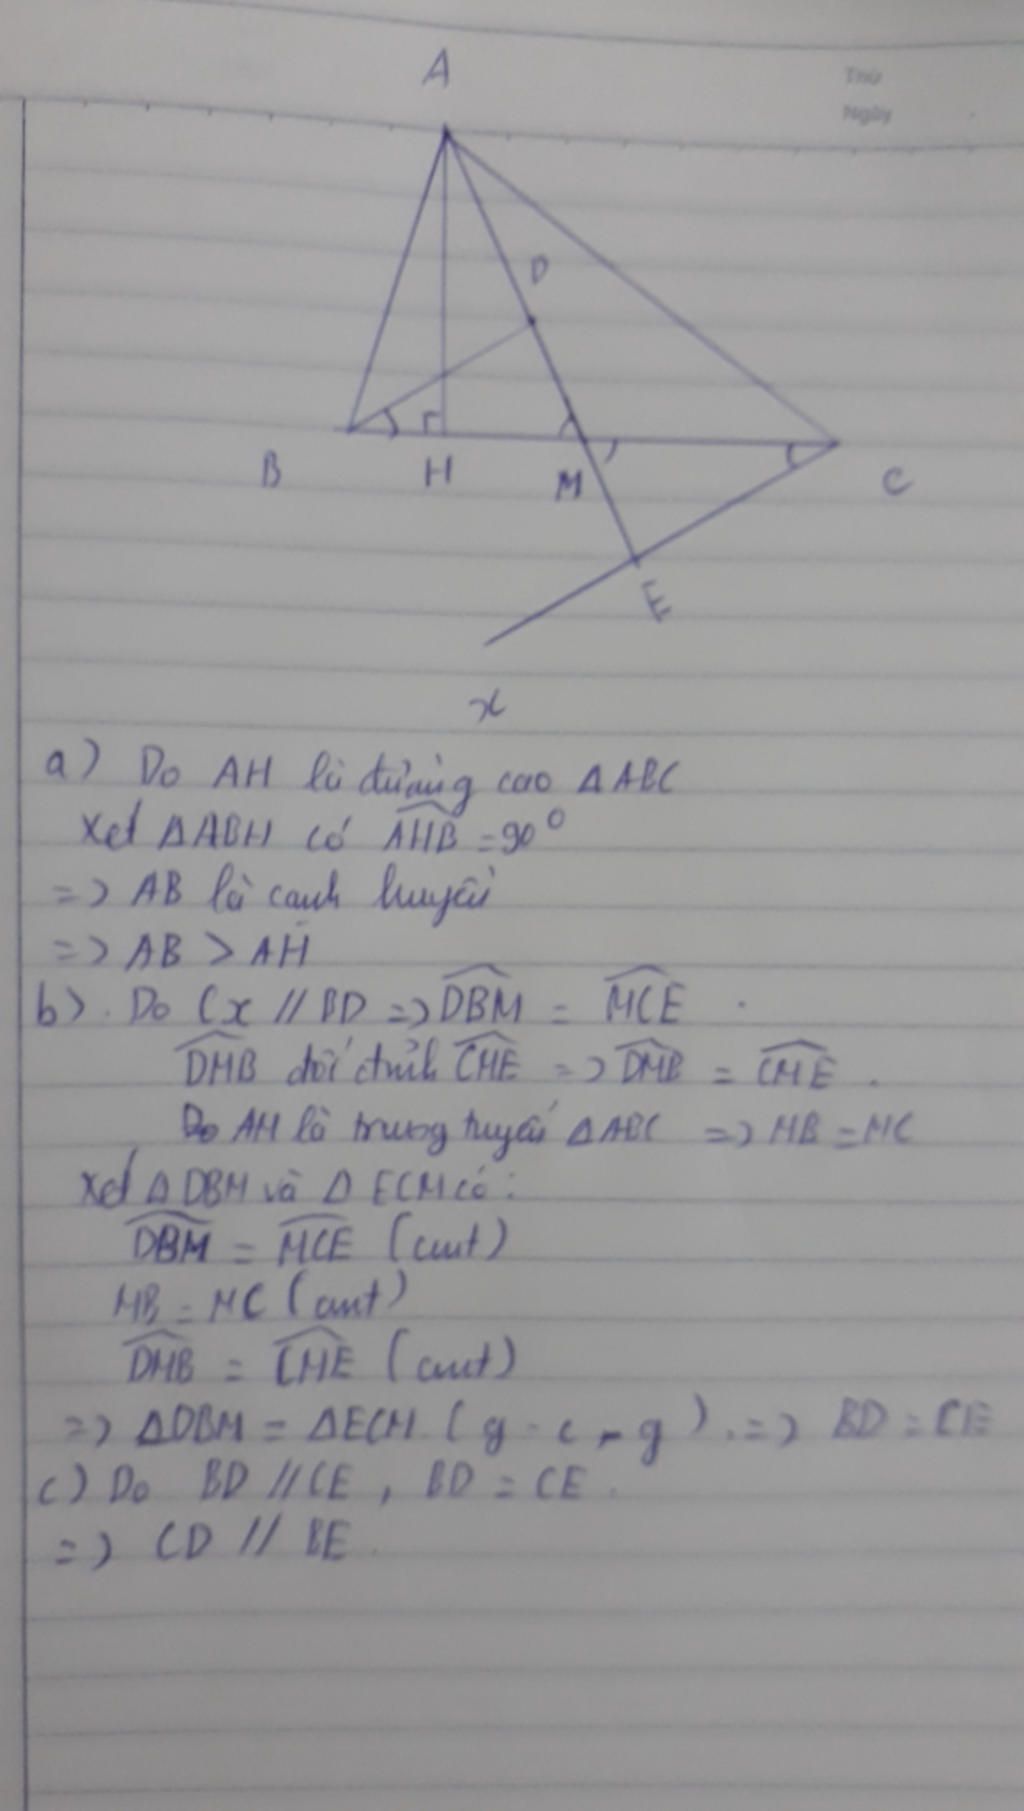 A
Thứ
Ngày
D
B H M C
E
x
a) Do AH là đường cao △ABC
Xét △ABH có AHB = 90°
=> AB là cạnh huyền
=> AB > AH
b). Do Cx // BD => DBM = MCE
DMB đối đỉnh CME => DMB = CME.
Do AM là trung tuyến △ABC => MB = MC
Xét △DBM và △ECM có:
DBM = MCE (cmt)
MB = MC (cmt)
DMB = CME (cmt)
=> △DBM = △ECM (g-c-g). => BD = CE
c) Do BD // CE, BD = CE.
=> CD // BE.